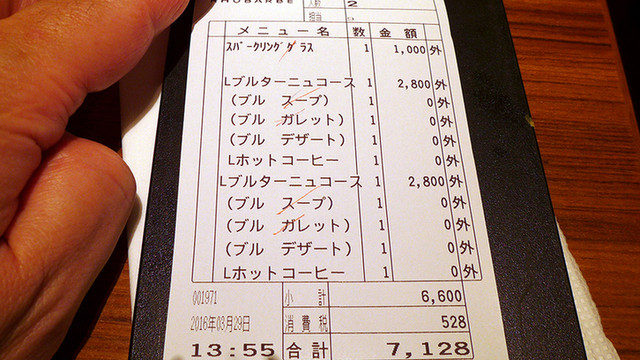 RHUBARBE
人数 2
担当 3
メニュー名 数 金額
スパークリンググラス 1 1,000外
Lブルターニュコース 1 2,800外
(ブル スープ) 1 0外
(ブル ガレット) 1 0外
(ブル デザート) 1 0外
Lホットコーヒー 1 0外
Lブルターニュコース 1 2,800外
(ブル スープ) 1 0外
(ブル ガレット) 1 0外
(ブル デザート) 1 0外
Lホットコーヒー 1 0外
001971 小計 6,600
2016年03月29日 消費税 528
13:55 合計 7,128